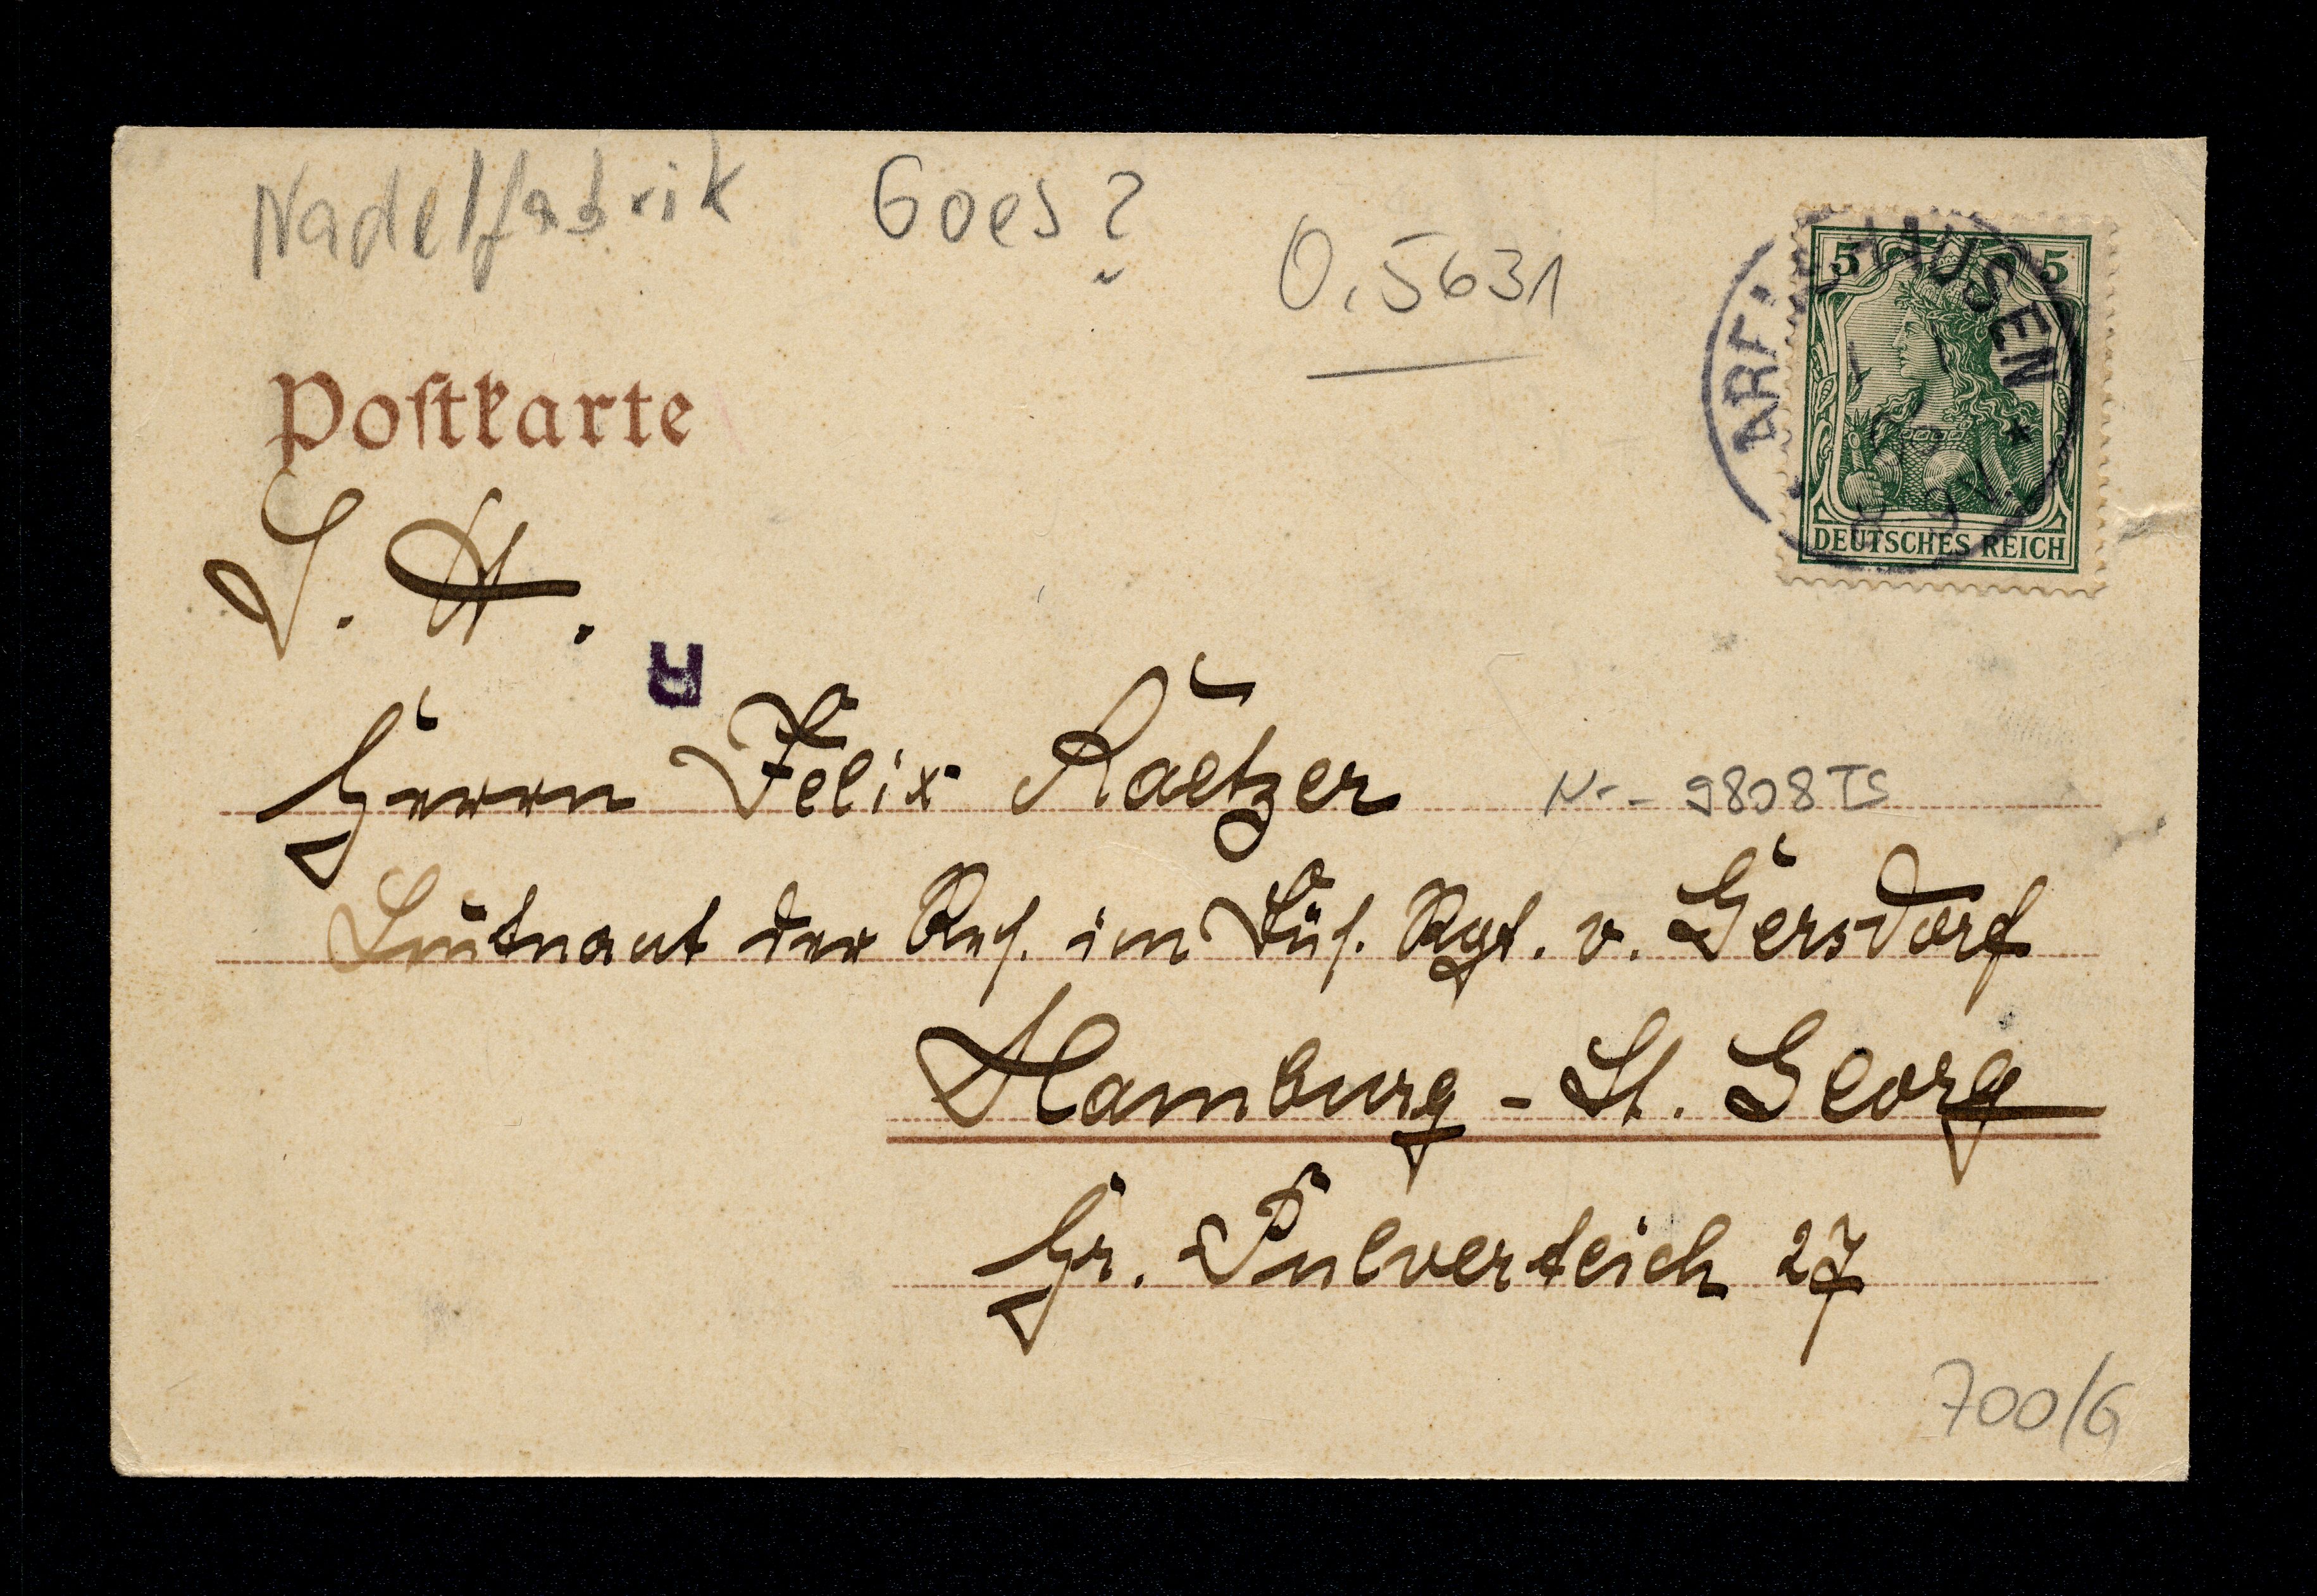 Nadelfabrik Goes?
0,5631
5 5
DEUTSCHES REICH
Postkarte
S. H.
R
Herrn Felix Raetzer
Nr. 9808 TS
Leutnant der Res. im Füs. Rgt. v. Gersdorf
Hamburg - St. Georg
Gr. Pulverteich 27
700/G